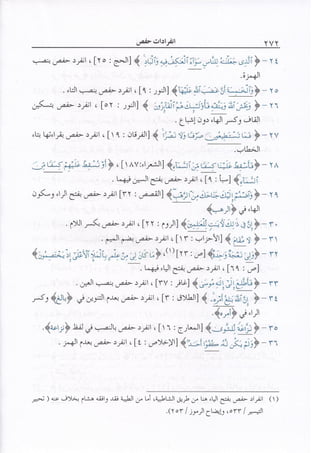 ٢٧٢ انفرادات حفص
٢٤ - ﴿ الَّذِي جَعَلْنَاهُ لِلنَّاسِ سَوَاءً الْعَاكِفُ فِيهِ وَالْبَادِ ﴾ [الحج : ٢٥] ، انفرد حفص بنصب
الهمزة.
٢٥ - ﴿وَالْخَامِسَةَ أَنَّ غَضَبَ اللَّهِ عَلَيْهَا﴾ [النور : ٩] ، انفرد حفص بنصب التاء .
٢٦ - ﴿وَيَخْشَ اللَّهَ وَيَتَّقْهِ فَأُولَئِكَ هُمُ الْفَائِزُونَ﴾ [النور : ٥٢] ، انفرد حفص بتسكين
القاف وكسر الهاء دون إشباع .
٢٧ - ﴿فَمَا تَسْتَطِيعُونَ صَرْفًا وَلَا نَصْرًا﴾ [الفرقان : ١٩] ، انفرد حفص بقراءتها بتاء
الخطاب.
٢٨ - ﴿فَأَسْقِطْ عَلَيْنَا كِسَفًا مِنَ السَّمَاءِ﴾ [الشعراء: ١٨٧] ، ﴿أَوْ نُسْقِطْ عَلَيْهِمْ كِسَفًا مِنَ
السَّمَاءِ﴾ [سبأ : ٩] ، انفرد حفص بفتح السين فيهما .
٢٩ - ﴿وَاضْمُمْ إِلَيْكَ جَنَاحَكَ مِنَ الرَّهْبِ﴾ [القصص : ٣٢] انفرد حفص بفتح الراء وسكون
الهاء في ﴿الرهب﴾
٣٠ - ﴿إِنَّ فِي ذَلِكَ لَآيَاتٍ لِلْعَالِمِينَ﴾ [الروم : ٢٢] ، انفرد حفص بكسر اللام .
٣١ - ﴿لَا مُقَامَ﴾ [الأحزاب : ١٣] ، انفرد حفص بضم الميم .
٣٢ - ﴿وَلِيَ نَعْجَةٌ وَاحِدَةٌ﴾ [ص : ٢٣] (١) ، ﴿مَا كَانَ لِيَ مِنْ عِلْمٍ بِالْمَلَإِ الْأَعْلَى إِذْ يَخْتَصِمُونَ﴾
[ص : ٦٩] ، انفرد حفص بفتح الياء فيهما .
٣٣ - ﴿فَأَطَّلِعَ إِلَى إِلَهِ مُوسَى﴾ [غافر : ٣٧] ، انفرد حفص بنصب العين .
٣٤ - ﴿إِنَّ اللَّهَ بَالِغُ أَمْرِهِ﴾ [الطلاق : ٣] ، انفرد حفص بعدم التنوين في ﴿بالغ﴾ وكسر
الراء في ﴿أمره﴾.
٣٥ - ﴿نَزَّاعَةً لِلشَّوَى﴾ [المعارج : ١٦] ، انفرد حفص بالنصب في لفظ ﴿نزاعة﴾.
٣٦ - ﴿وَلَمْ يَكُنْ لَهُ كُفُوًا أَحَدٌ﴾ [الإخلاص : ٤] ، انفرد حفص بعدم الهمز .
(١) انفراد حفص بفتح الياء هنا من طريق الشاطبية، أما من الطيبة فقد وافقه هشام بخلاف عنه ( تحبير
التيسير / ٥٣٣، وإيضاح الرموز / ٢٥٣).